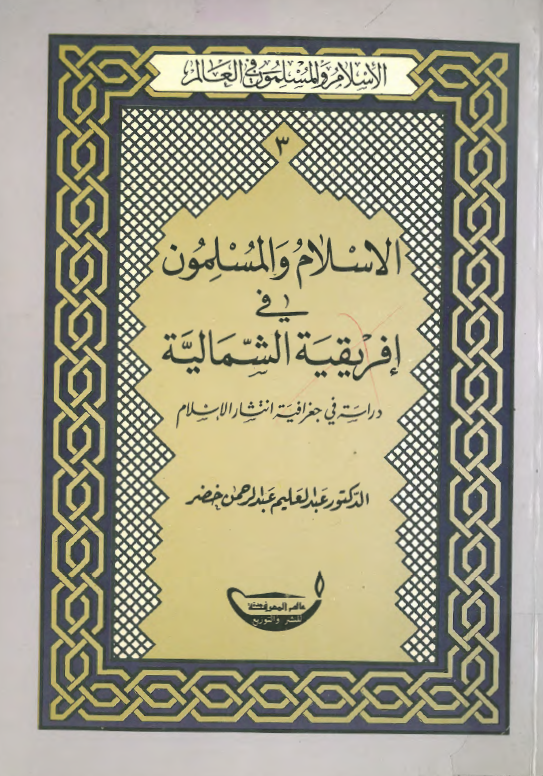 الإسلام والمسلمون في العالم
٣
الإسْلامُ وَالمُسْلِمُون
في
إفريْقيَة الشَّمَاليَّة
دراسة في جغرافية انتشار الإسلام
الدكتور عبد العليم عبد الرحمن خضر
عالم المعرفة
للنشر والتوزيع